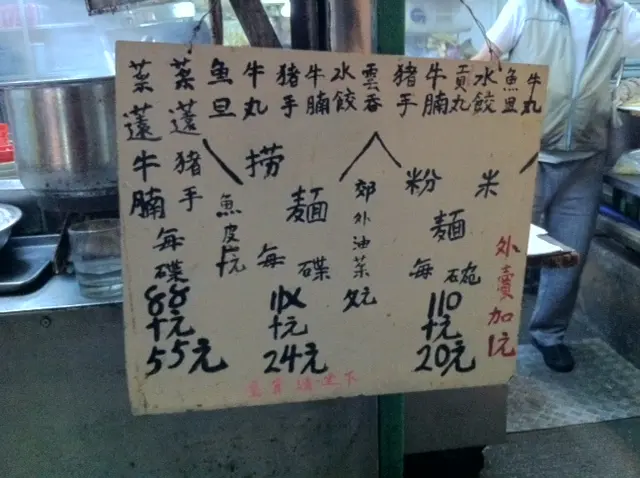 牛丸
魚旦
水餃
貢丸
牛腩
猪手
雲吞
水餃
牛腩
猪手
牛丸
魚旦
菜薳猪手
菜薳牛腩
外賣加1元
米粉麵
每碗
〢〇
十元
20元
郊外油菜
撈麵
每碟
〢〤
十元
24元
魚皮
每碟
〥〥
十元
55元
請坐下